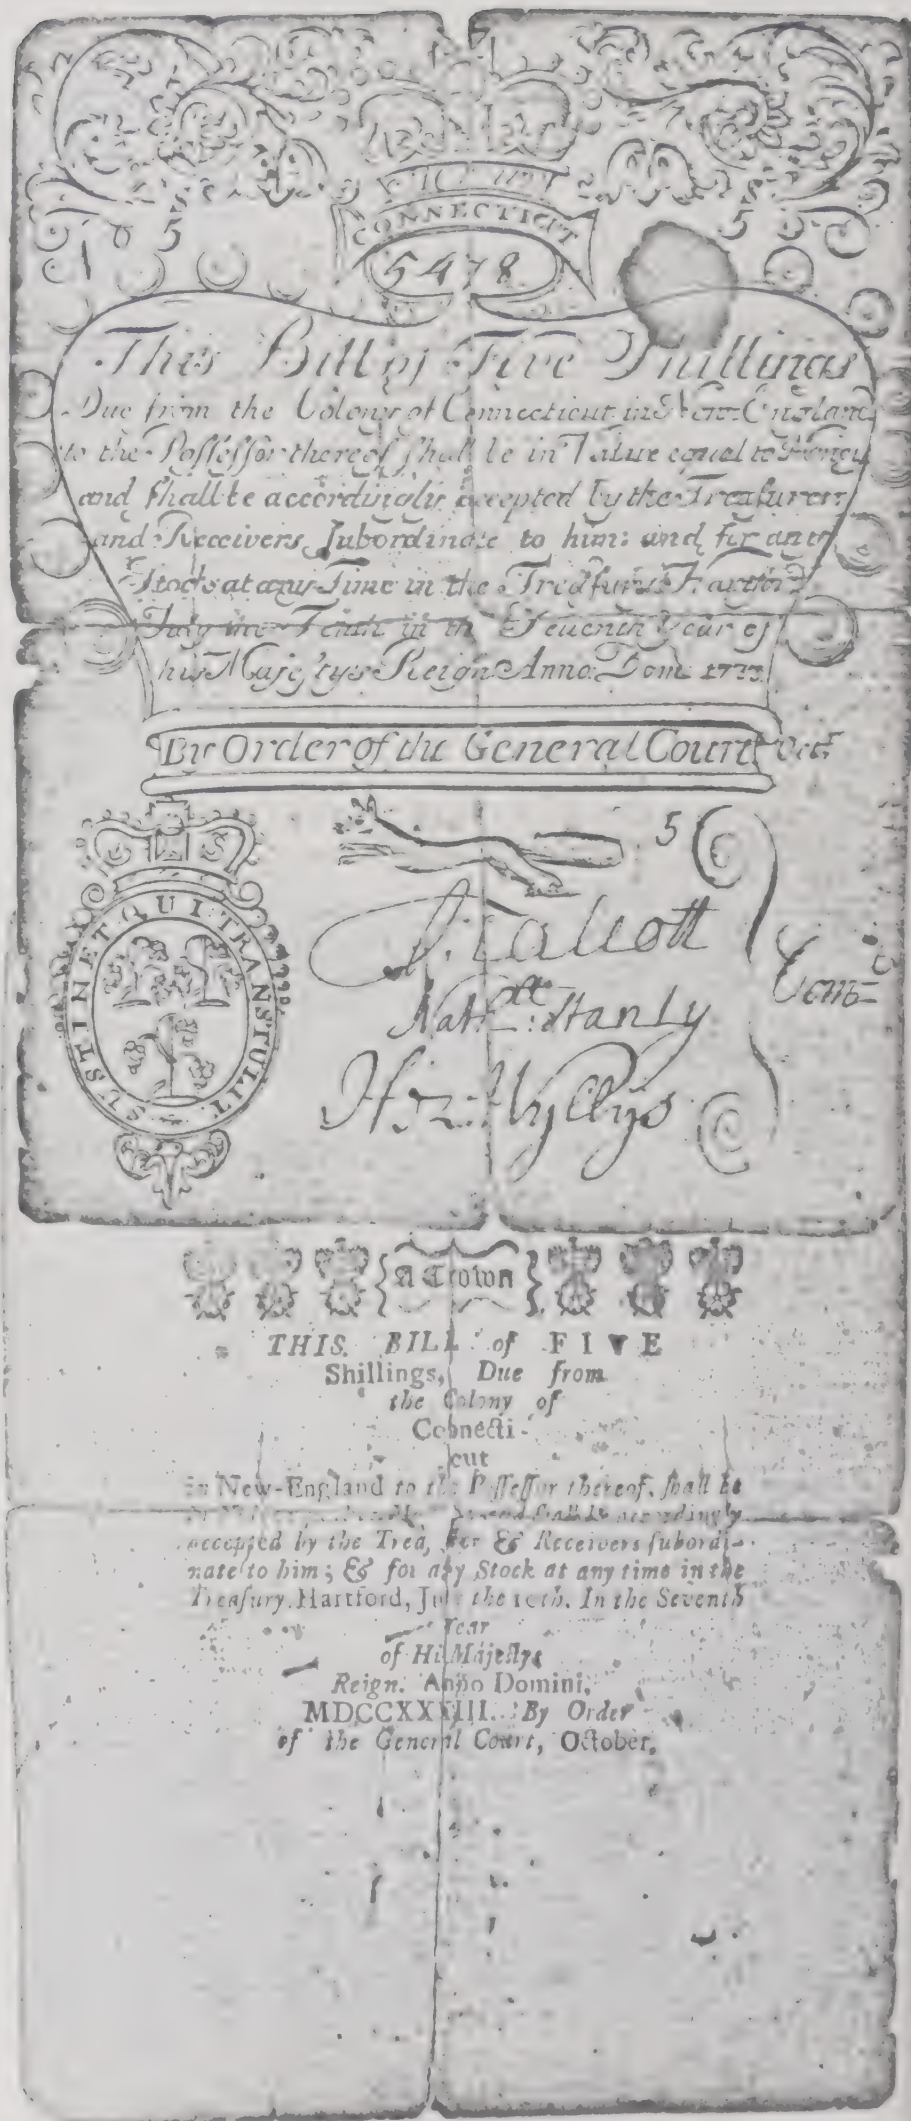 CONNECTICUT
5
5
5478
This Bill of Five Shillings
Due from the Colony of Connecticut in New England
to the Possessor thereof shall be in Value equal to Money
and shall be accordingly accepted by the Treasurer
and Receivers Subordinate to him: and for any
Stock at any Time in the Treasury Hartford
July the Tenth in the Seventh Year of
his Majestys Reign Anno Dom 1733
By Order of the General Court Octr
5
SUSTINET QUI TRANSTULIT
J Talcott
Nathll Stanly
Hez Wyllys
Comte
A Crown
THIS BILL of FIVE
Shillings, Due from
the Colony of
Connecti-
cut
in New-England to the Possessor thereof, shall be
and shall be accordingly
accepted by the Trea, rer & Receivers subordi-
nate to him; & for any Stock at any time in the
Treasury. Hartford, July the 10th. In the Seventh
Year
of His Majestys
Reign. Anno Domini,
MDCCXXXIII. By Order
of the General Court, October,